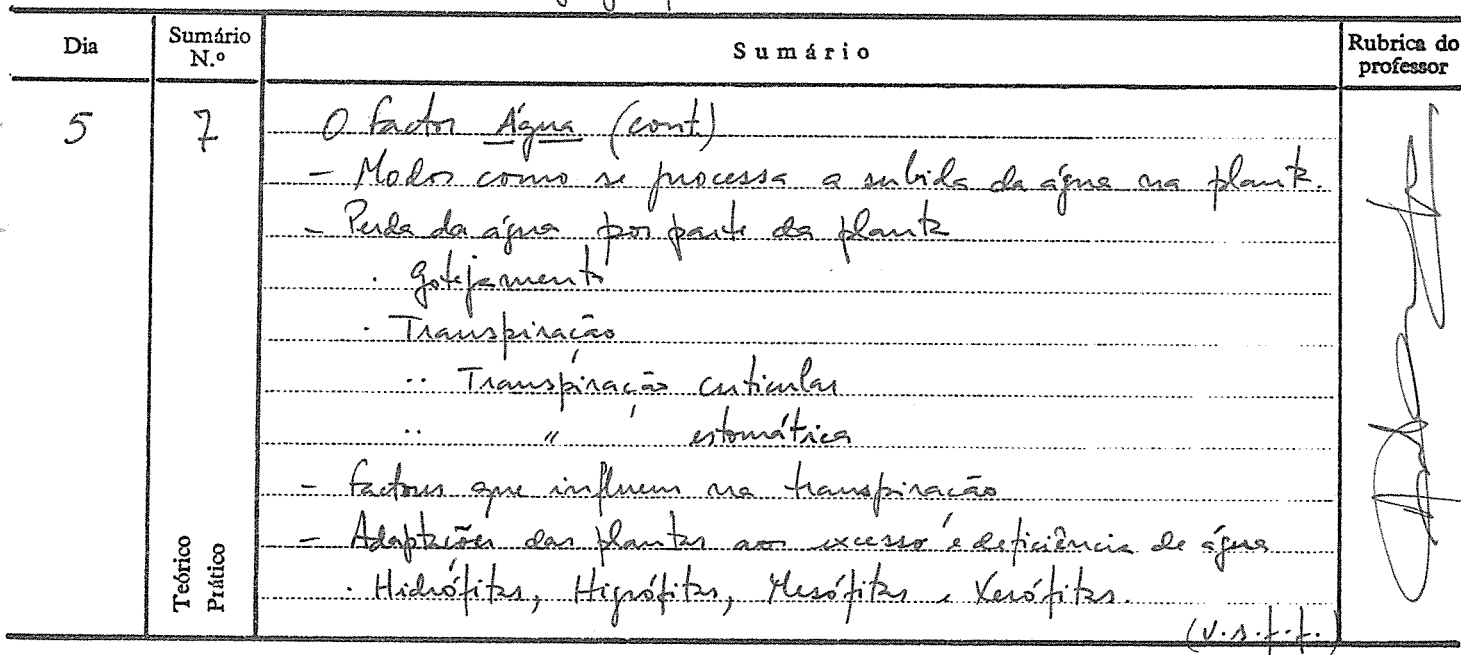 Dia Sumário N.º Sumário Rubrica do professor
5 7 O factor Água (cont.)
- Modos como se processa a subida da água na planta.
- Perda da água por parte da planta
. Gotejamento
. Transpiração
.. Transpiração cuticular
.. " estomática
- Factores que influem na transpiração
- Adaptações das plantas ao excesso e deficiência de água
. Hidrófitas, Higrófitas, Mesófitas e Xerófitas.
(v.s.f.f.)
Teórico
Prático